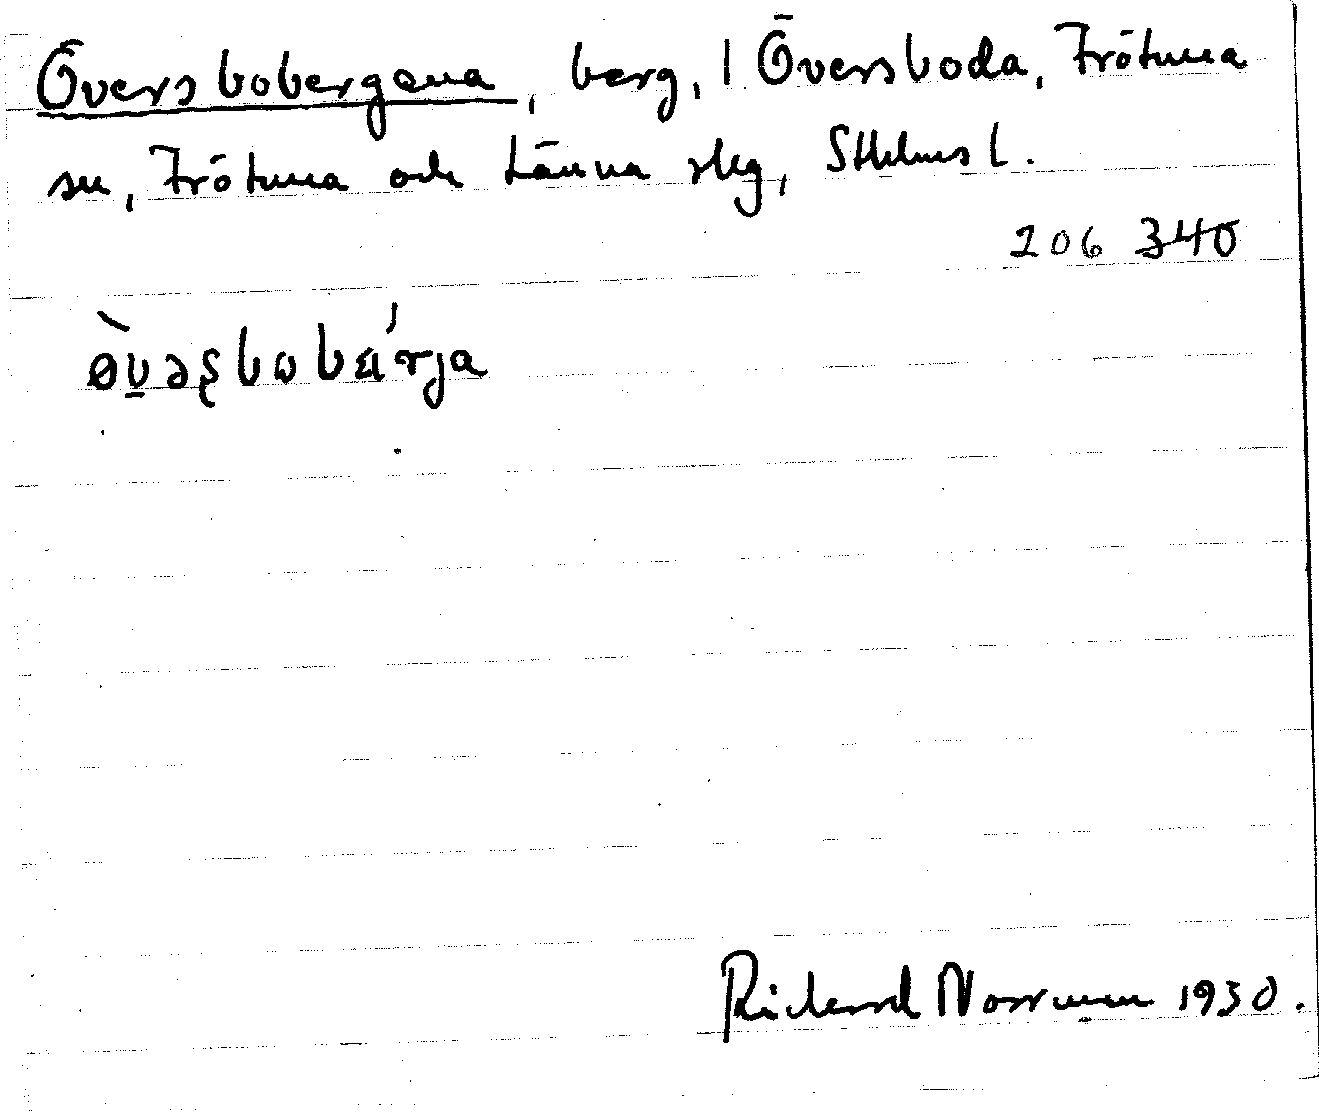 Översbobergena, berg, 1 Översboda, Frötuna
sn, Frötuna och Länna slg, Sthlms l.
206 340
ø̀v̲əʂbobɛ́rja
Rickard Norrman 1930.